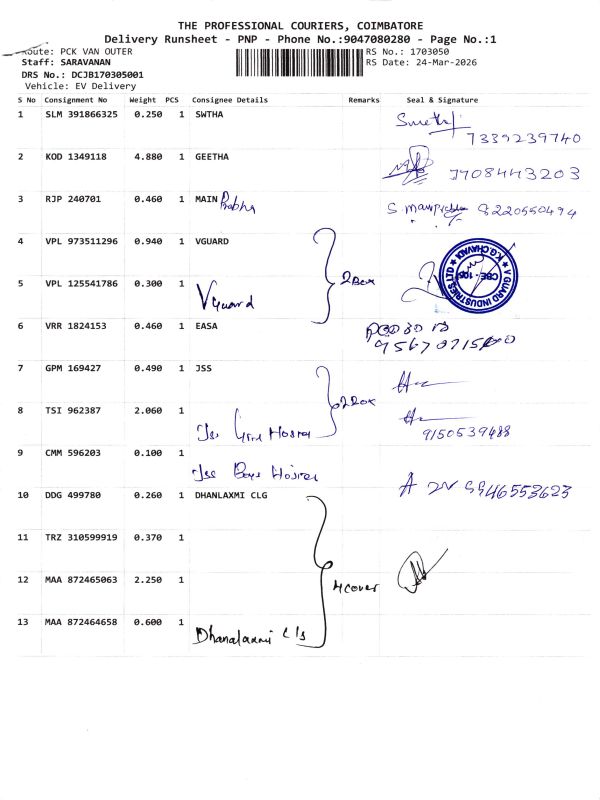 THE PROFESSIONAL COURIERS, COIMBATORE
Delivery Runsheet - PNP - Phone No.:9047080280 - Page No.:1
Route: PCK VAN OUTER RS No.: 1703050
Staff: SARAVANAN RS Date: 24-Mar-2026
DRS No.: DCJB170305001
Vehicle: EV Delivery
S No Consignment No Weight PCS Consignee Details Remarks Seal & Signature
1 SLM 391866325 0.250 1 SWTHA
7339239740
2 KOD 1349118 4.880 1 GEETHA 7708443203
3 RJP 240701 0.460 1 MAIN Prabha 8220550494
4 VPL 973511296 0.940 1 VGUARD
V GUARD INDUSTRIES LTD K.G.CHAVADI CBE - 105
5 VPL 125541786 0.300 1 2 Box
V guard
6 VRR 1824153 0.460 1 EASA
7 GPM 169427 0.490 1 JSS
8 TSI 962387 2.060 1 2 Box
Jss Girls Hostel 9150539488
9 CMM 596203 0.100 1
Jss Boys Hostel
10 DDG 499780 0.260 1 DHANLAXMI CLG 9946553623
11 TRZ 310599919 0.370 1
12 MAA 872465063 2.250 1 4 cover
13 MAA 872464658 0.600 1
Dhanalaxmi clg